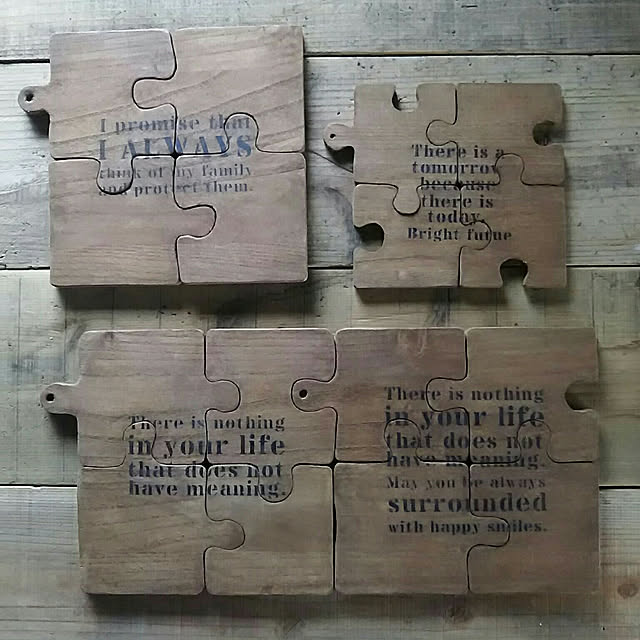 I promise that
I ALWAYS
think of my family
and protect them.
There is a
tomorrow
because
there is
today.
Bright future
There is nothing
in your life
that does not
have meaning.
There is nothing
in your life
that does not
have meaning.
May you be always
surrounded
with happy smiles.